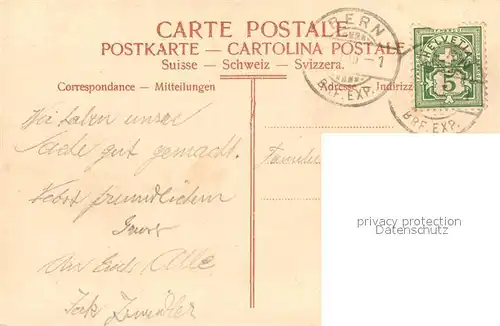 CARTE POSTALE
POSTKARTE – CARTOLINA POSTALE
Suisse – Schweiz – Svizzera.
BERN
BRF. EXP.
HELVETIA
5
BRF. EXP.
Correspondance – Mitteilungen
Adresse Indirizz
Wir haben unsere
Sache gut gemacht.
Nebst freundlichem
Gruss
An Euch Alle
Familie
privacy protection
Datenschutz